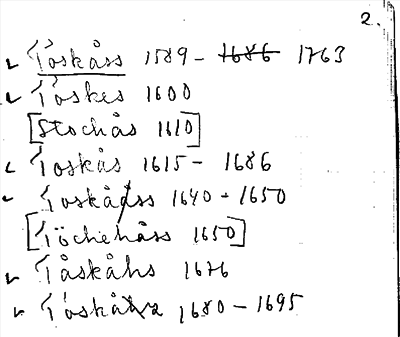 2.
Toskåss 1589 - 1686 1763
Toskes 1600
[Stochås 1610]
Toskås 1615 - 1686
Toskåss 1640 - 1650
[Töchehåss 1650]
Tåskåhs 1676
1680 - 1695